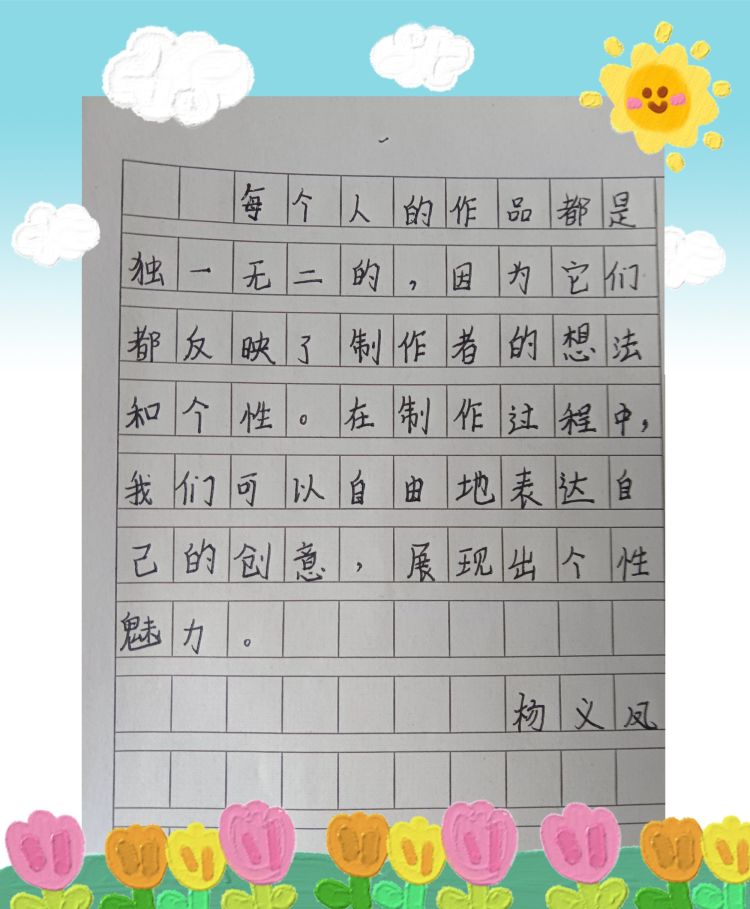 每个人的作品都是
独一无二的，因为它们
都反映了制作者的想法
和个性。在制作过程中，
我们可以自由地表达自
己的创意，展现出个性
魅力。
杨义凤